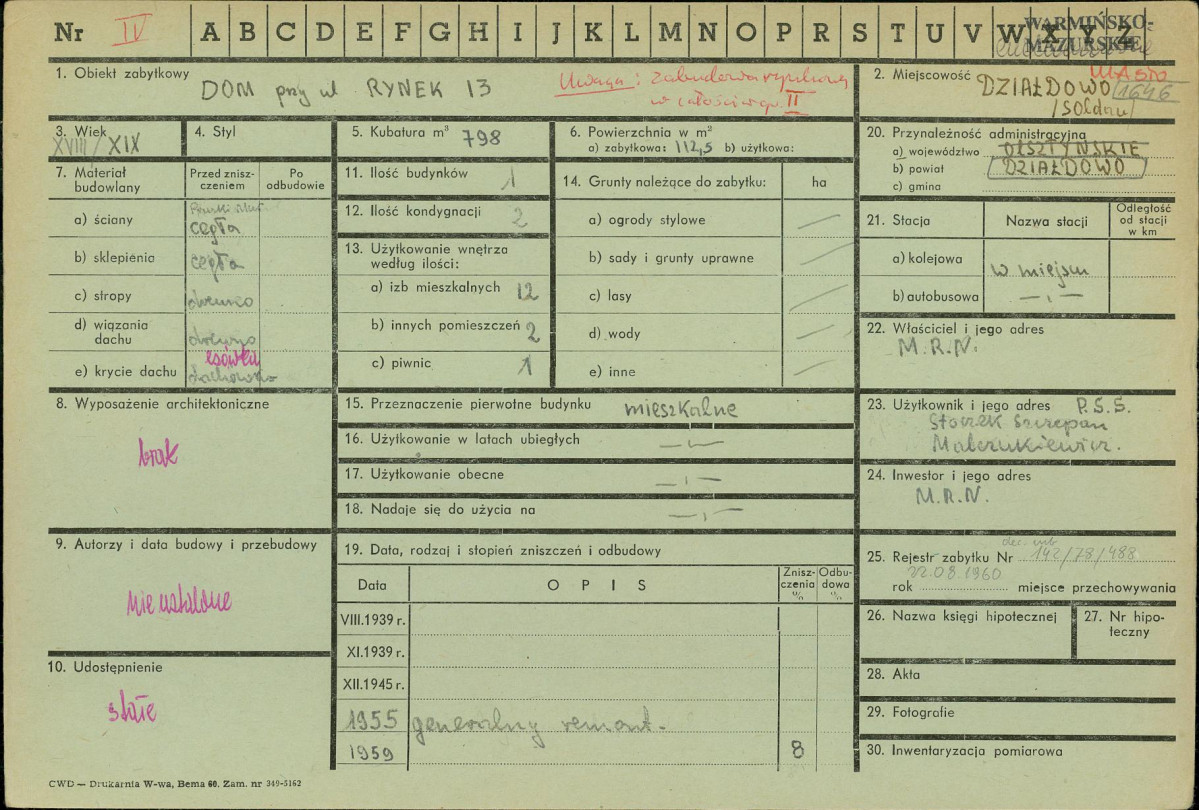 Nr IV A B C D E F G H I J K L M N O P R S T U V W X Y Z
WARMIŃSKO-
MAZURSKIE
1. Obiekt zabytkowy DOM przy ul RYNEK 13
Uwaga: zabudowa rynkowa
w całości w gr. II
2. Miejscowość MIASTO
DZIAŁDOWO 1646
/SOLDAU/
3. Wiek
XVIII/XIX
4. Styl
5. Kubatura m³ 798
6. Powierzchnia w m²
a) zabytkowa: 112,5 b) użytkowa:
7. Materiał
budowlany
Przed znisz-
czeniem
Po
odbudowie
a) ściany
cegła
b) sklepienia cegła
c) stropy drewno
d) wiązania
dachu drewno
esówka
e) krycie dachu dachówka
8. Wyposażenie architektoniczne
brak
9. Autorzy i data budowy i przebudowy
nie ustalone
10. Udostępnienie
stałe
11. Ilość budynków 1
12. Ilość kondygnacji 2
13. Użytkowanie wnętrza
według ilości:
a) izb mieszkalnych 12
b) innych pomieszczeń 2
c) piwnic 1
14. Grunty należące do zabytku: ha
a) ogrody stylowe —
b) sady i grunty uprawne —
c) lasy —
d) wody —
e) inne —
15. Przeznaczenie pierwotne budynku mieszkalne
16. Użytkowanie w latach ubiegłych —„—
17. Użytkowanie obecne —„—
18. Nadaje się do użycia na —„—
19. Data, rodzaj i stopień zniszczeń i odbudowy
Data OPIS Znisz-
czenia
% Odbu-
dowa
%
VIII.1939 r.
XI.1939 r.
XII.1945 r.
1955 generalny remont.
1959 8
20. Przynależność administracyjna
a) województwo OLSZTYŃSKIE
b) powiat DZIAŁDOWO
c) gmina
21. Stacja Nazwa stacji Odległość
od stacji
w km
a) kolejowa w miejscu
b) autobusowa —„—
22. Właściciel i jego adres
M.R.N.
23. Użytkownik i jego adres P.S.S.
Szczepan
24. Inwestor i jego adres
M.R.N.
25. Rejestr zabytku Nr 142/78/488
22.08.1960
rok miejsce przechowywania
26. Nazwa księgi hipotecznej
27. Nr hipo-
teczny
28. Akta
29. Fotografie
30. Inwentaryzacja pomiarowa
CWD — Drukarnia W-wa, Bema 60. Zam. nr 349-5162